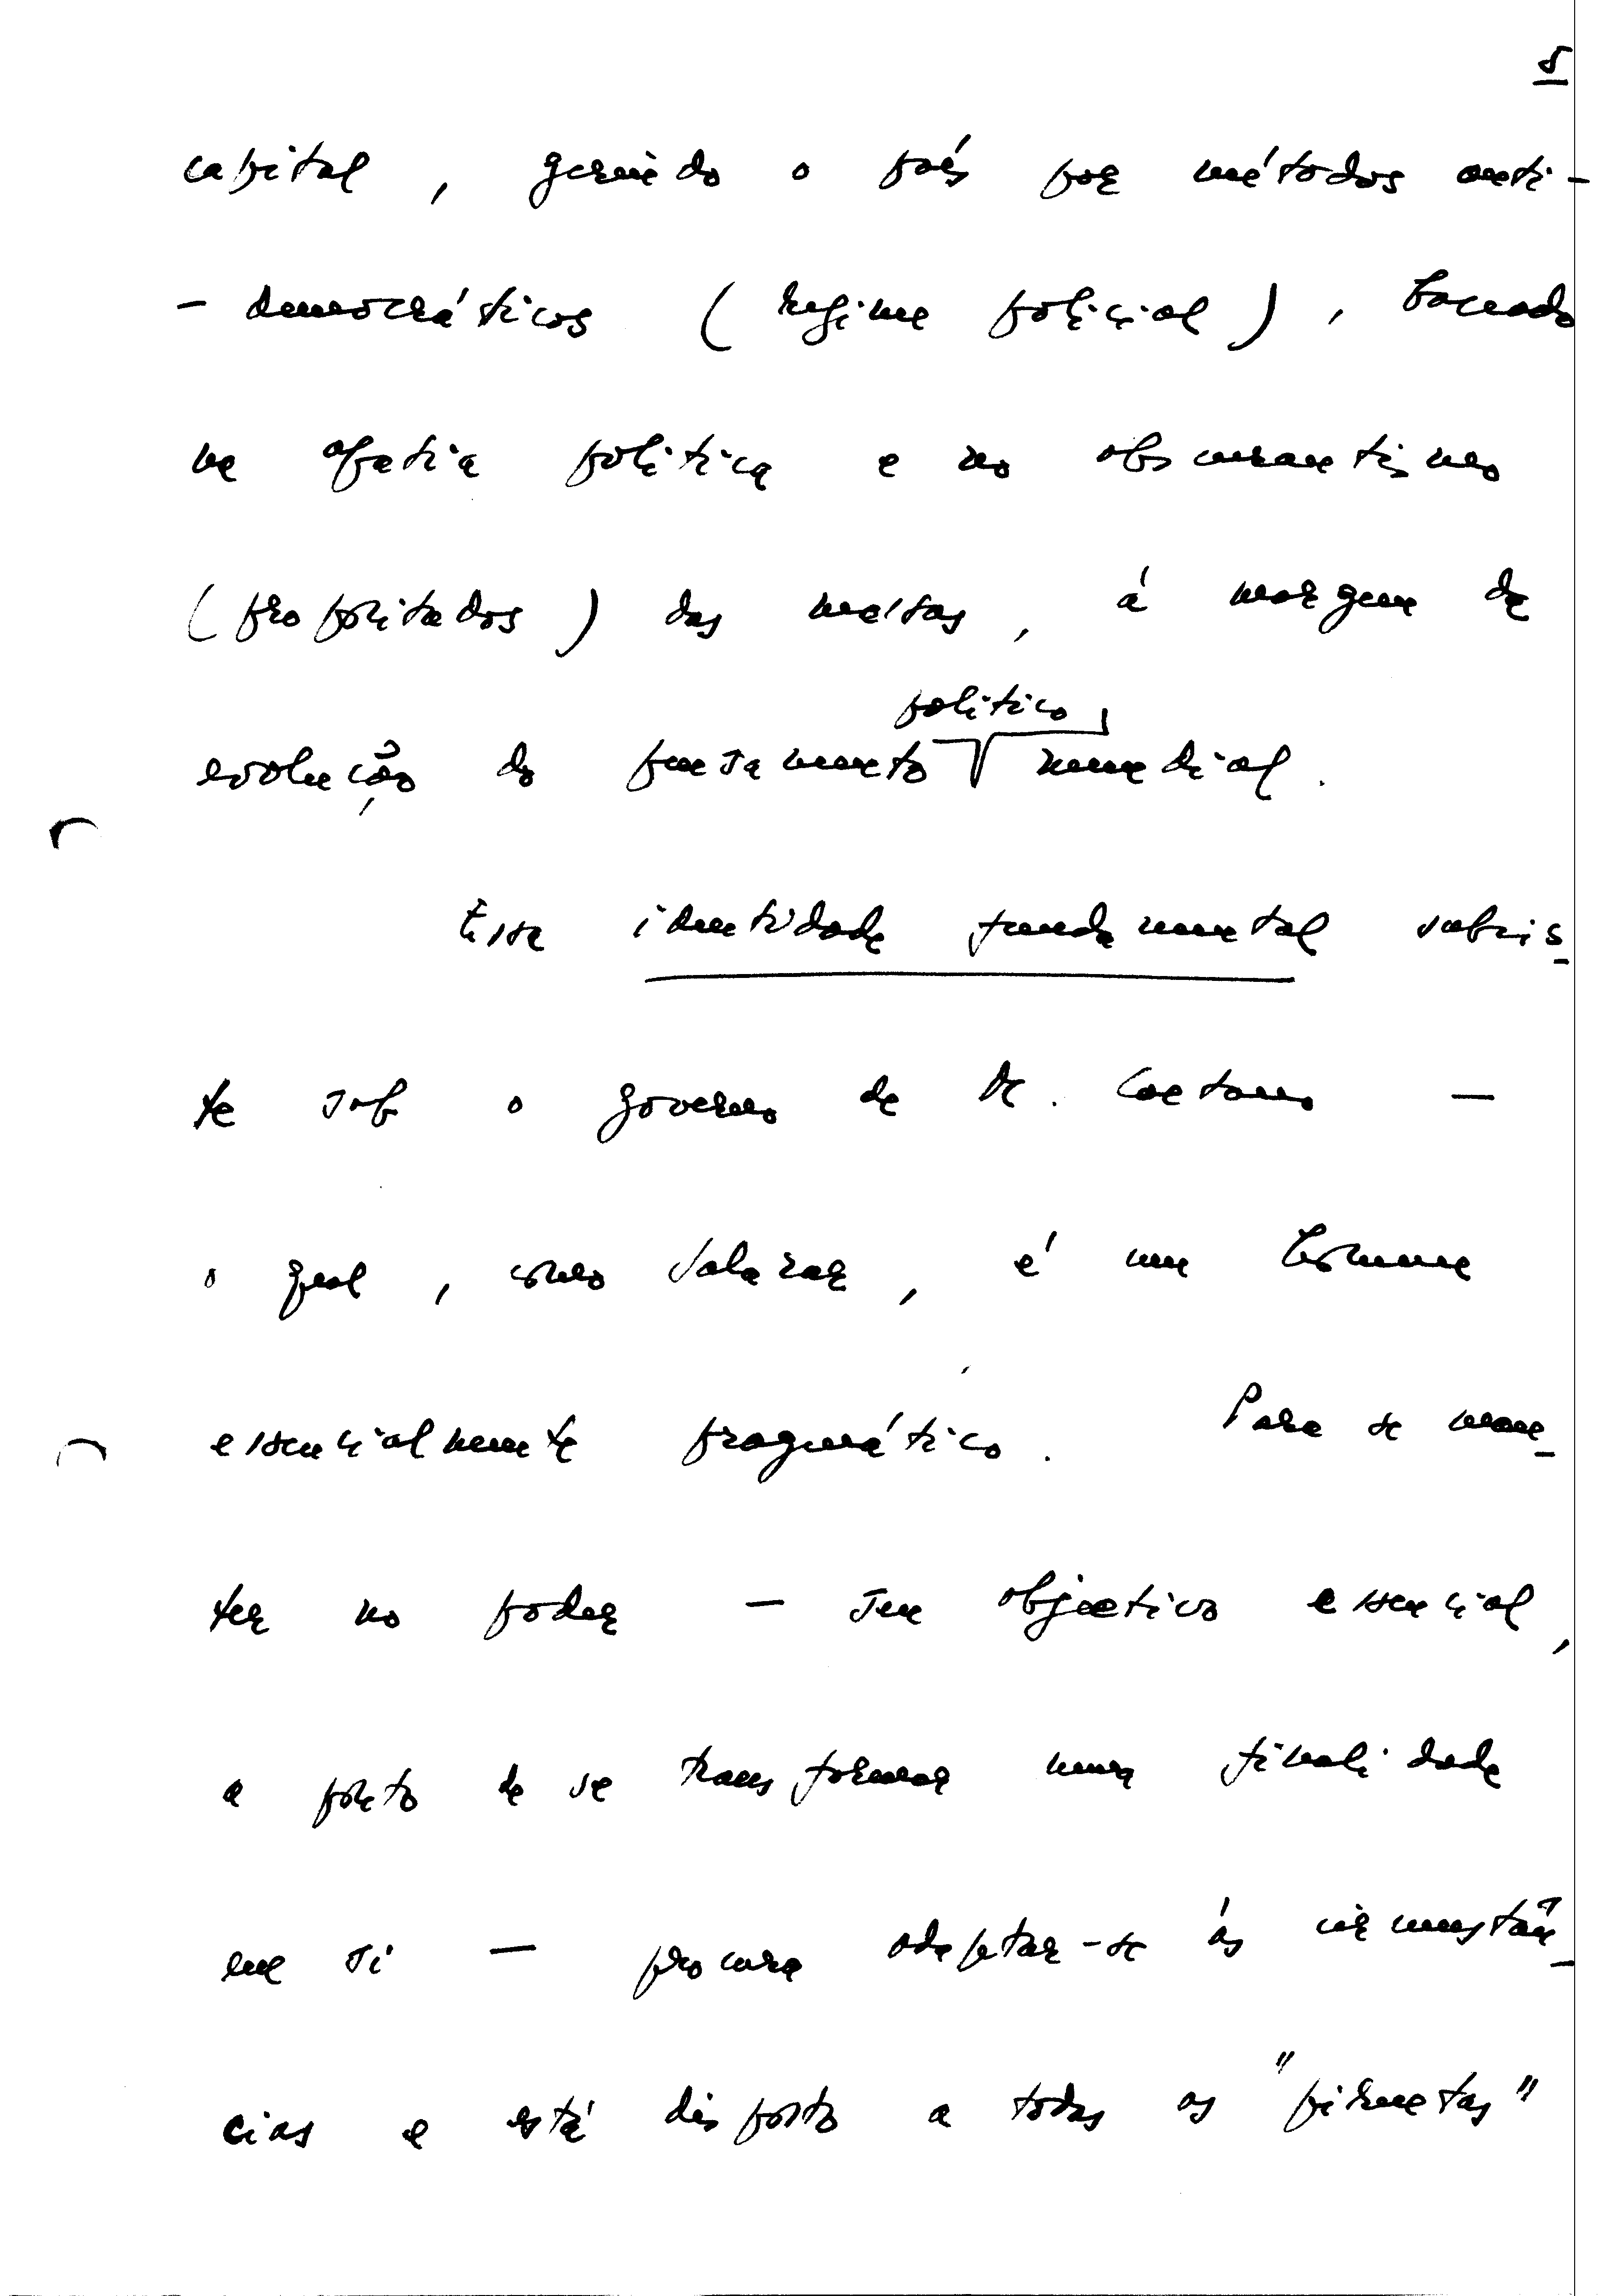 5
capital, gerindo o país por métodos anti-
- democráticos (regime policial), baseado
na apatia politica e no obscurantismo
(propositados) das massas, á margem da
politico
evolução do pensamento mundial.
Essa identidade fundamental subsis-
te sob o governo de M. Caetano —
o qual, como Salazar, é um homem
essencialmente pragmático. Para se man-
ter no poder — seu objectivo essencial,
a ponto de se transformar numa finalidade
em si — procura adaptar-se ás circunstân-
cias e está disposto a todas as "piruetas"